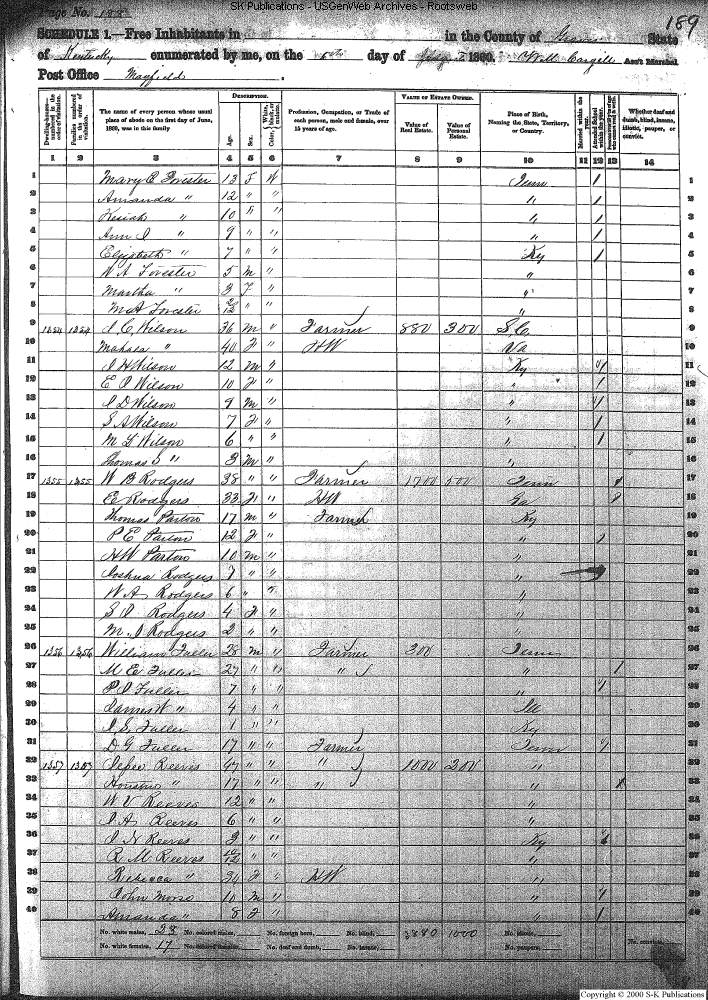 SK Publications - USGenWeb Archives - Rootsweb
Page No. 188
189
SCHEDULE 1.—Free Inhabitants in in the County of State
of Kentucky enumerated by me, on the day of 1860. Will Cargill Ass't Marshal.
Post Office Mayfield
Dwelling-houses—numbered in the order of visitation. Families numbered in the order of visitation. The name of every person whose usual place of abode on the first day of June, 1860, was in this family DESCRIPTION. Age. Sex. Color, White, black, or mulatto. Profession, Occupation, or Trade of each person, male and female, over 15 years of age. VALUE OF ESTATE OWNED. Value of Real Estate. Value of Personal Estate. Place of Birth, Naming the State, Territory, or Country. Married within the year. Attended School within the year. Whether deaf and dumb, blind, insane, idiotic, pauper, or convict.
1 2 3 4 5 6 7 8 9 10 11 12 13 14
1 Mary E Forester 13 F W Tenn / 1
2 Amanda " 12 " " " / 2
3 Kesiah " 10 " " " / 3
4 Ann J " 9 " " " / 4
5 Elizabeth " 7 " " Ky / 5
6 W A Forester 5 M " " 6
7 Martha " 3 F " " 7
8 Forester 2/12 " " " 8
9 1354 1354 J C Wilson 36 M " Farmer 880 300 S.C. 9
10 Mahala " 40 F " HW Va 10
11 J H Wilson 12 M " Ky / 11
12 E J Wilson 10 F " " / 12
13 J D Wilson 9 M " " / 13
14 S A Wilson 7 F " " / 14
15 M F Wilson 6 " " " / 15
16 Thomas J " 3 M " " 16
17 1355 1355 W B Rodgers 38 " " Farmer 1700 500 Tenn 17
18 E Rodgers 33 F " HW Ga 18
19 Thomas Parton 17 M " Farmer Ky 19
20 P E Parton 12 F " " / 20
21 H W Parton 10 M " " 21
22 Joshua Rodgers 7 " " " 22
23 W A Rodgers 6 " " " 23
24 S J Rodgers 4 F " " 24
25 M J Rodgers 2 " " " 25
26 1356 1356 William Fuller 28 M " Farmer 300 Tenn 26
27 M E Fuller 27 " " " " / 27
28 P J Fuller 7 " " " / 28
29 James W " 4 " " Ill 29
30 J S Fuller 1 " " Ky 30
31 D G Fuller 17 " " Farmer Tenn / 31
32 1357 1357 Reeves 47 " " " 1000 200 " 32
33 Houston " 17 " " " " 33
34 W V Reeves 12 " " " 34
35 J A Reeves 6 " " " 35
36 J N Reeves 2 " " Ky 36
37 R M Reeves 10/12 " " " 37
38 Rebecca " 30 F " HW " 38
39 John Morse 10 M " " / 39
40 Amanda " 8 F " " / 40
No. white males, 23 No. colored males, No. foreign born, No. blind, 3880 1000 No. idiotic,
No. white females, 17 No. colored females, No. deaf and dumb, No. insane, No. paupers, No. convicts,
Copyright © 2000 S-K Publications